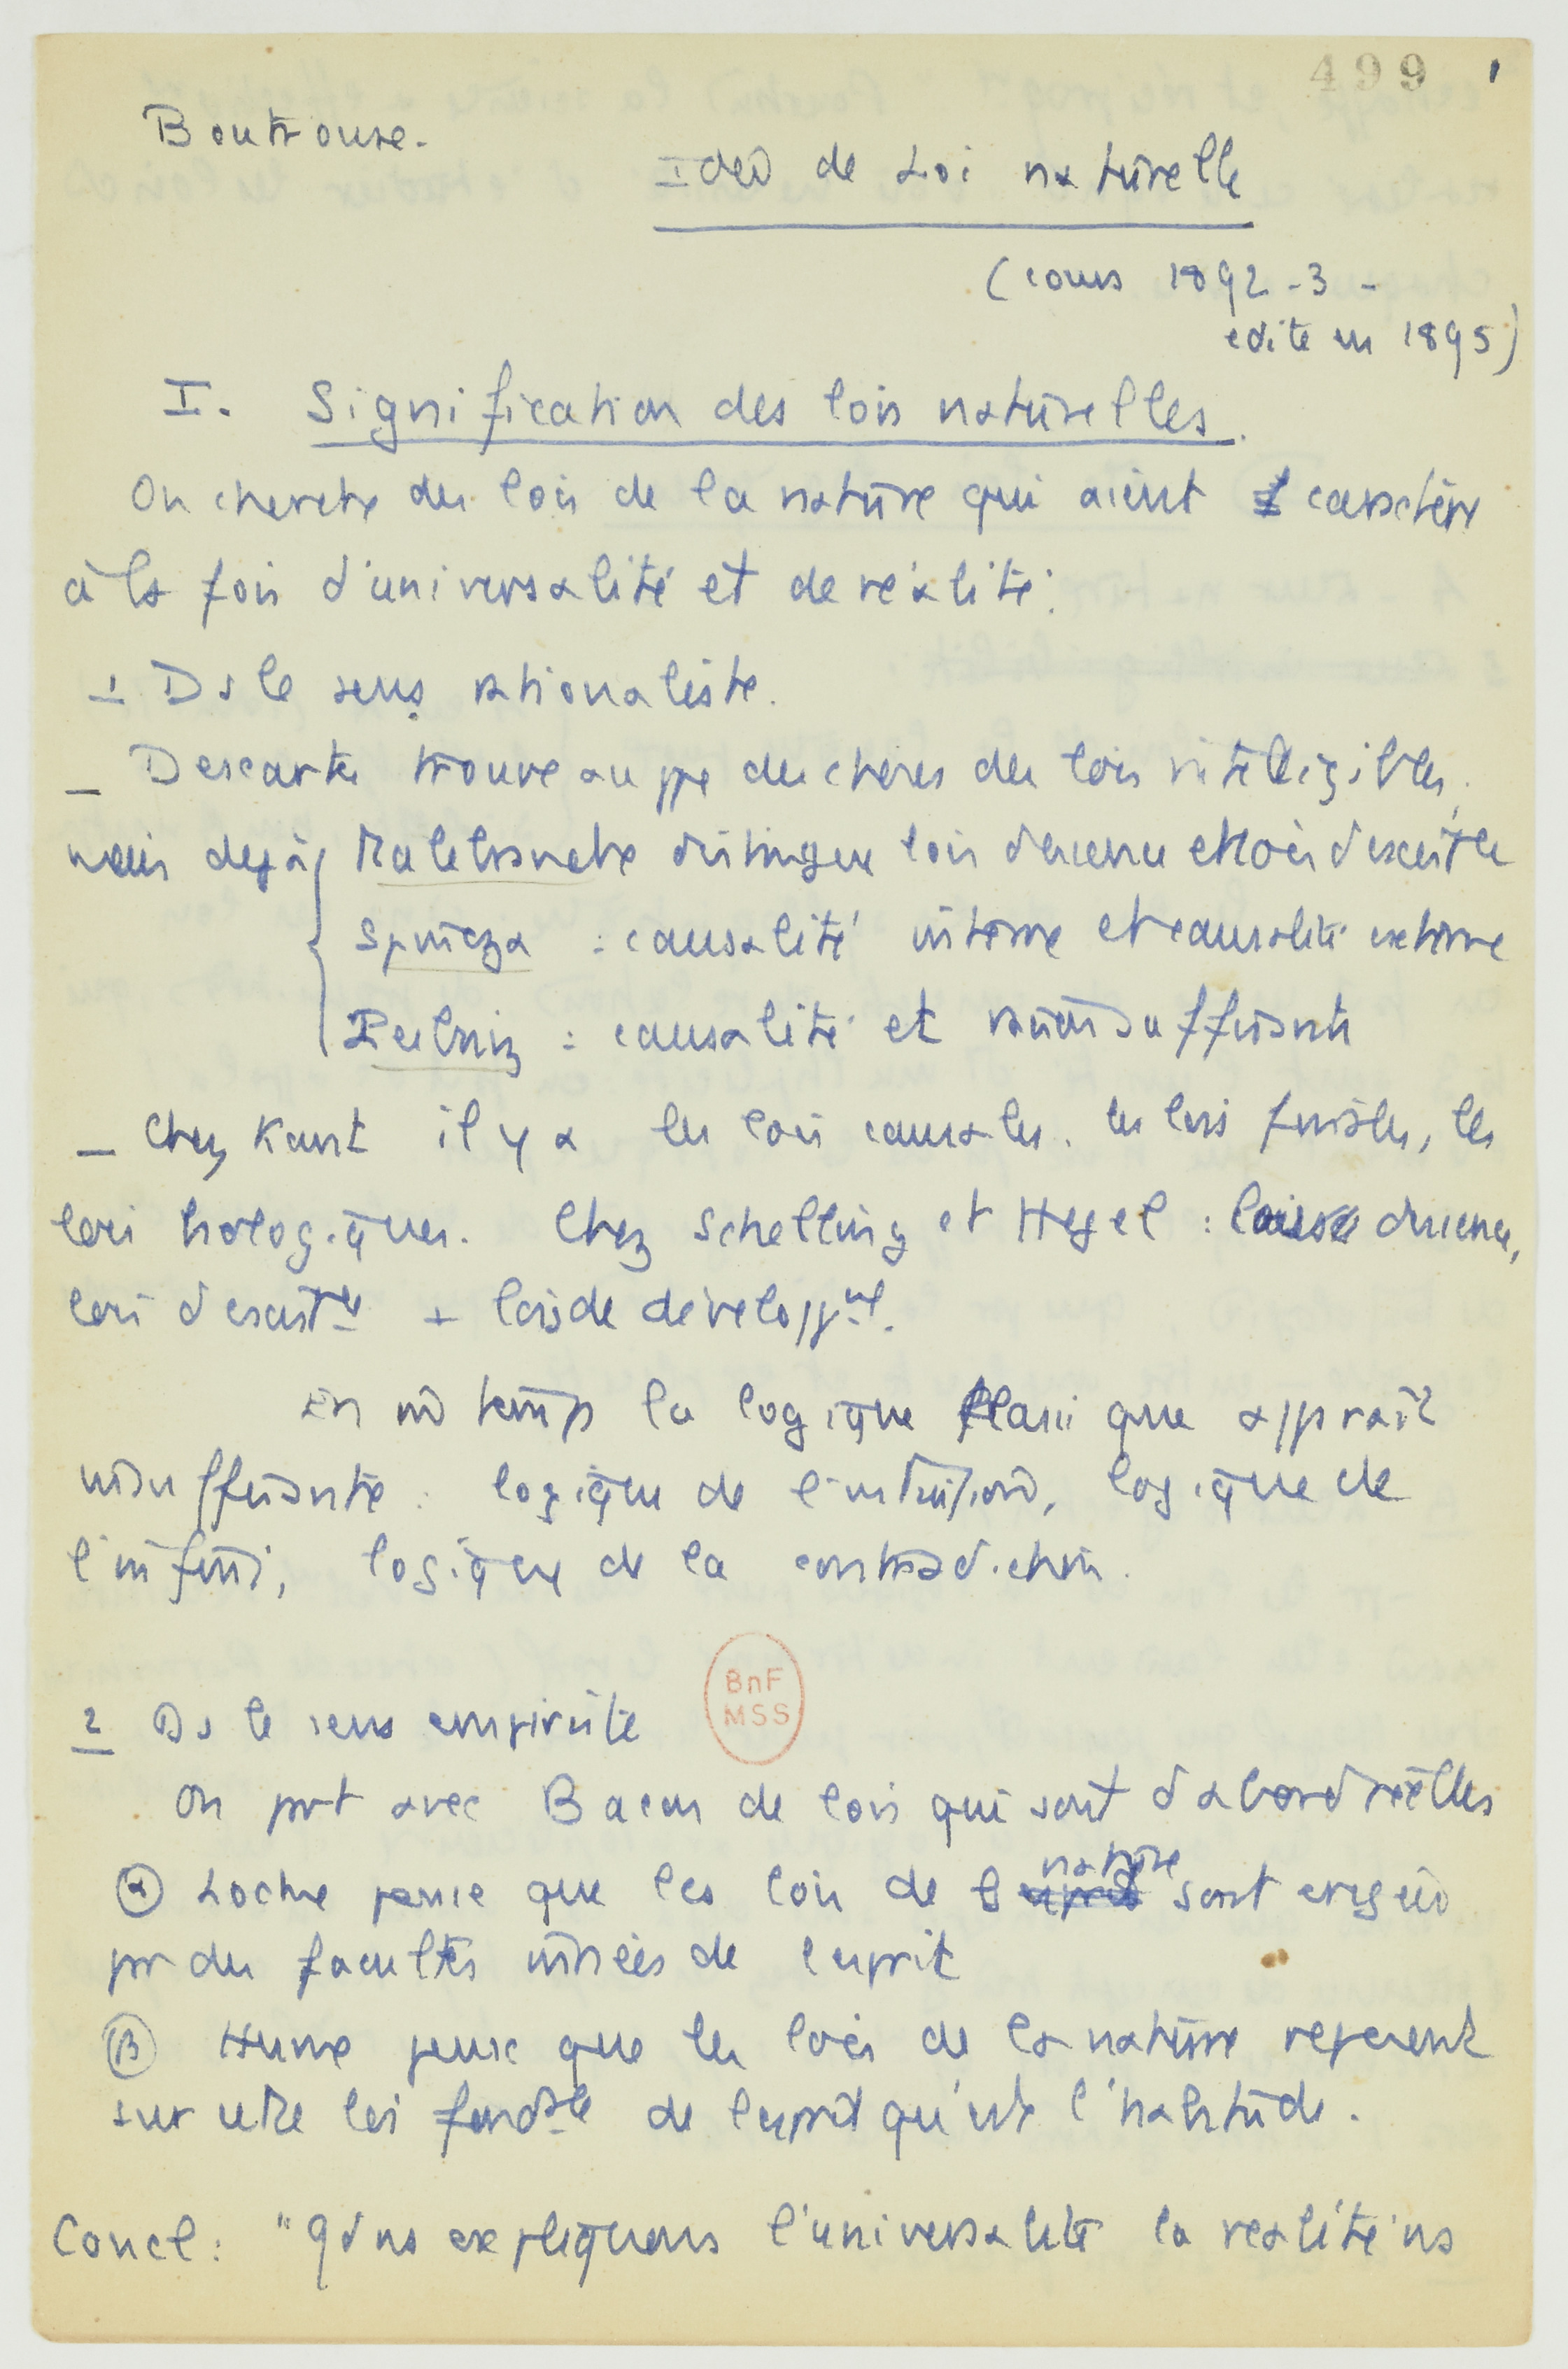 499 1
Boutroux.
Idée de Loi naturelle
(cours 1892-3 -
édité en 1895)
I. Signification des lois naturelles.
On cherche des lois de la nature qui aient caractère
à la fois d'universalité et de réalité.
1 Ds le sens rationaliste.
_ Descartes trouve au ppe des choses des lois intelligibles,
mais déjà Malebranche distingue lois d'essence et lois d'existce
Spinoza : causalité interne et causalité externe
Leibniz : causalité et raison suffisante
_ Chez Kant il y a les lois causales, les lois finales, les
lois biologiques. Chez Schelling et Hegel : lois d'essence,
lois d'existce + lois de développt.
En m temps la logique classique apparaît
insuffisante : logique de l'intuition, logique de
l'infini, logique de la contradiction.
BnF
MSS
2 Ds le sens empiriste
On part avec Bacon de lois qui sont d'abord réelles
α Locke pense que les lois de la nature sont exigées
par des facultés innées de l'esprit
β Hume pense que les lois de la nature reposent
sur une loi fondale de l'esprit qu'est l'habitude.
Concl : "Qd ns expliquons l'universalité la réalité ns